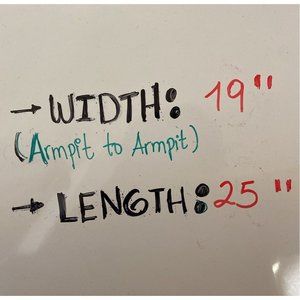 → WIDTH: 19"
(Armpit to Armpit)
→ LENGTH: 25"